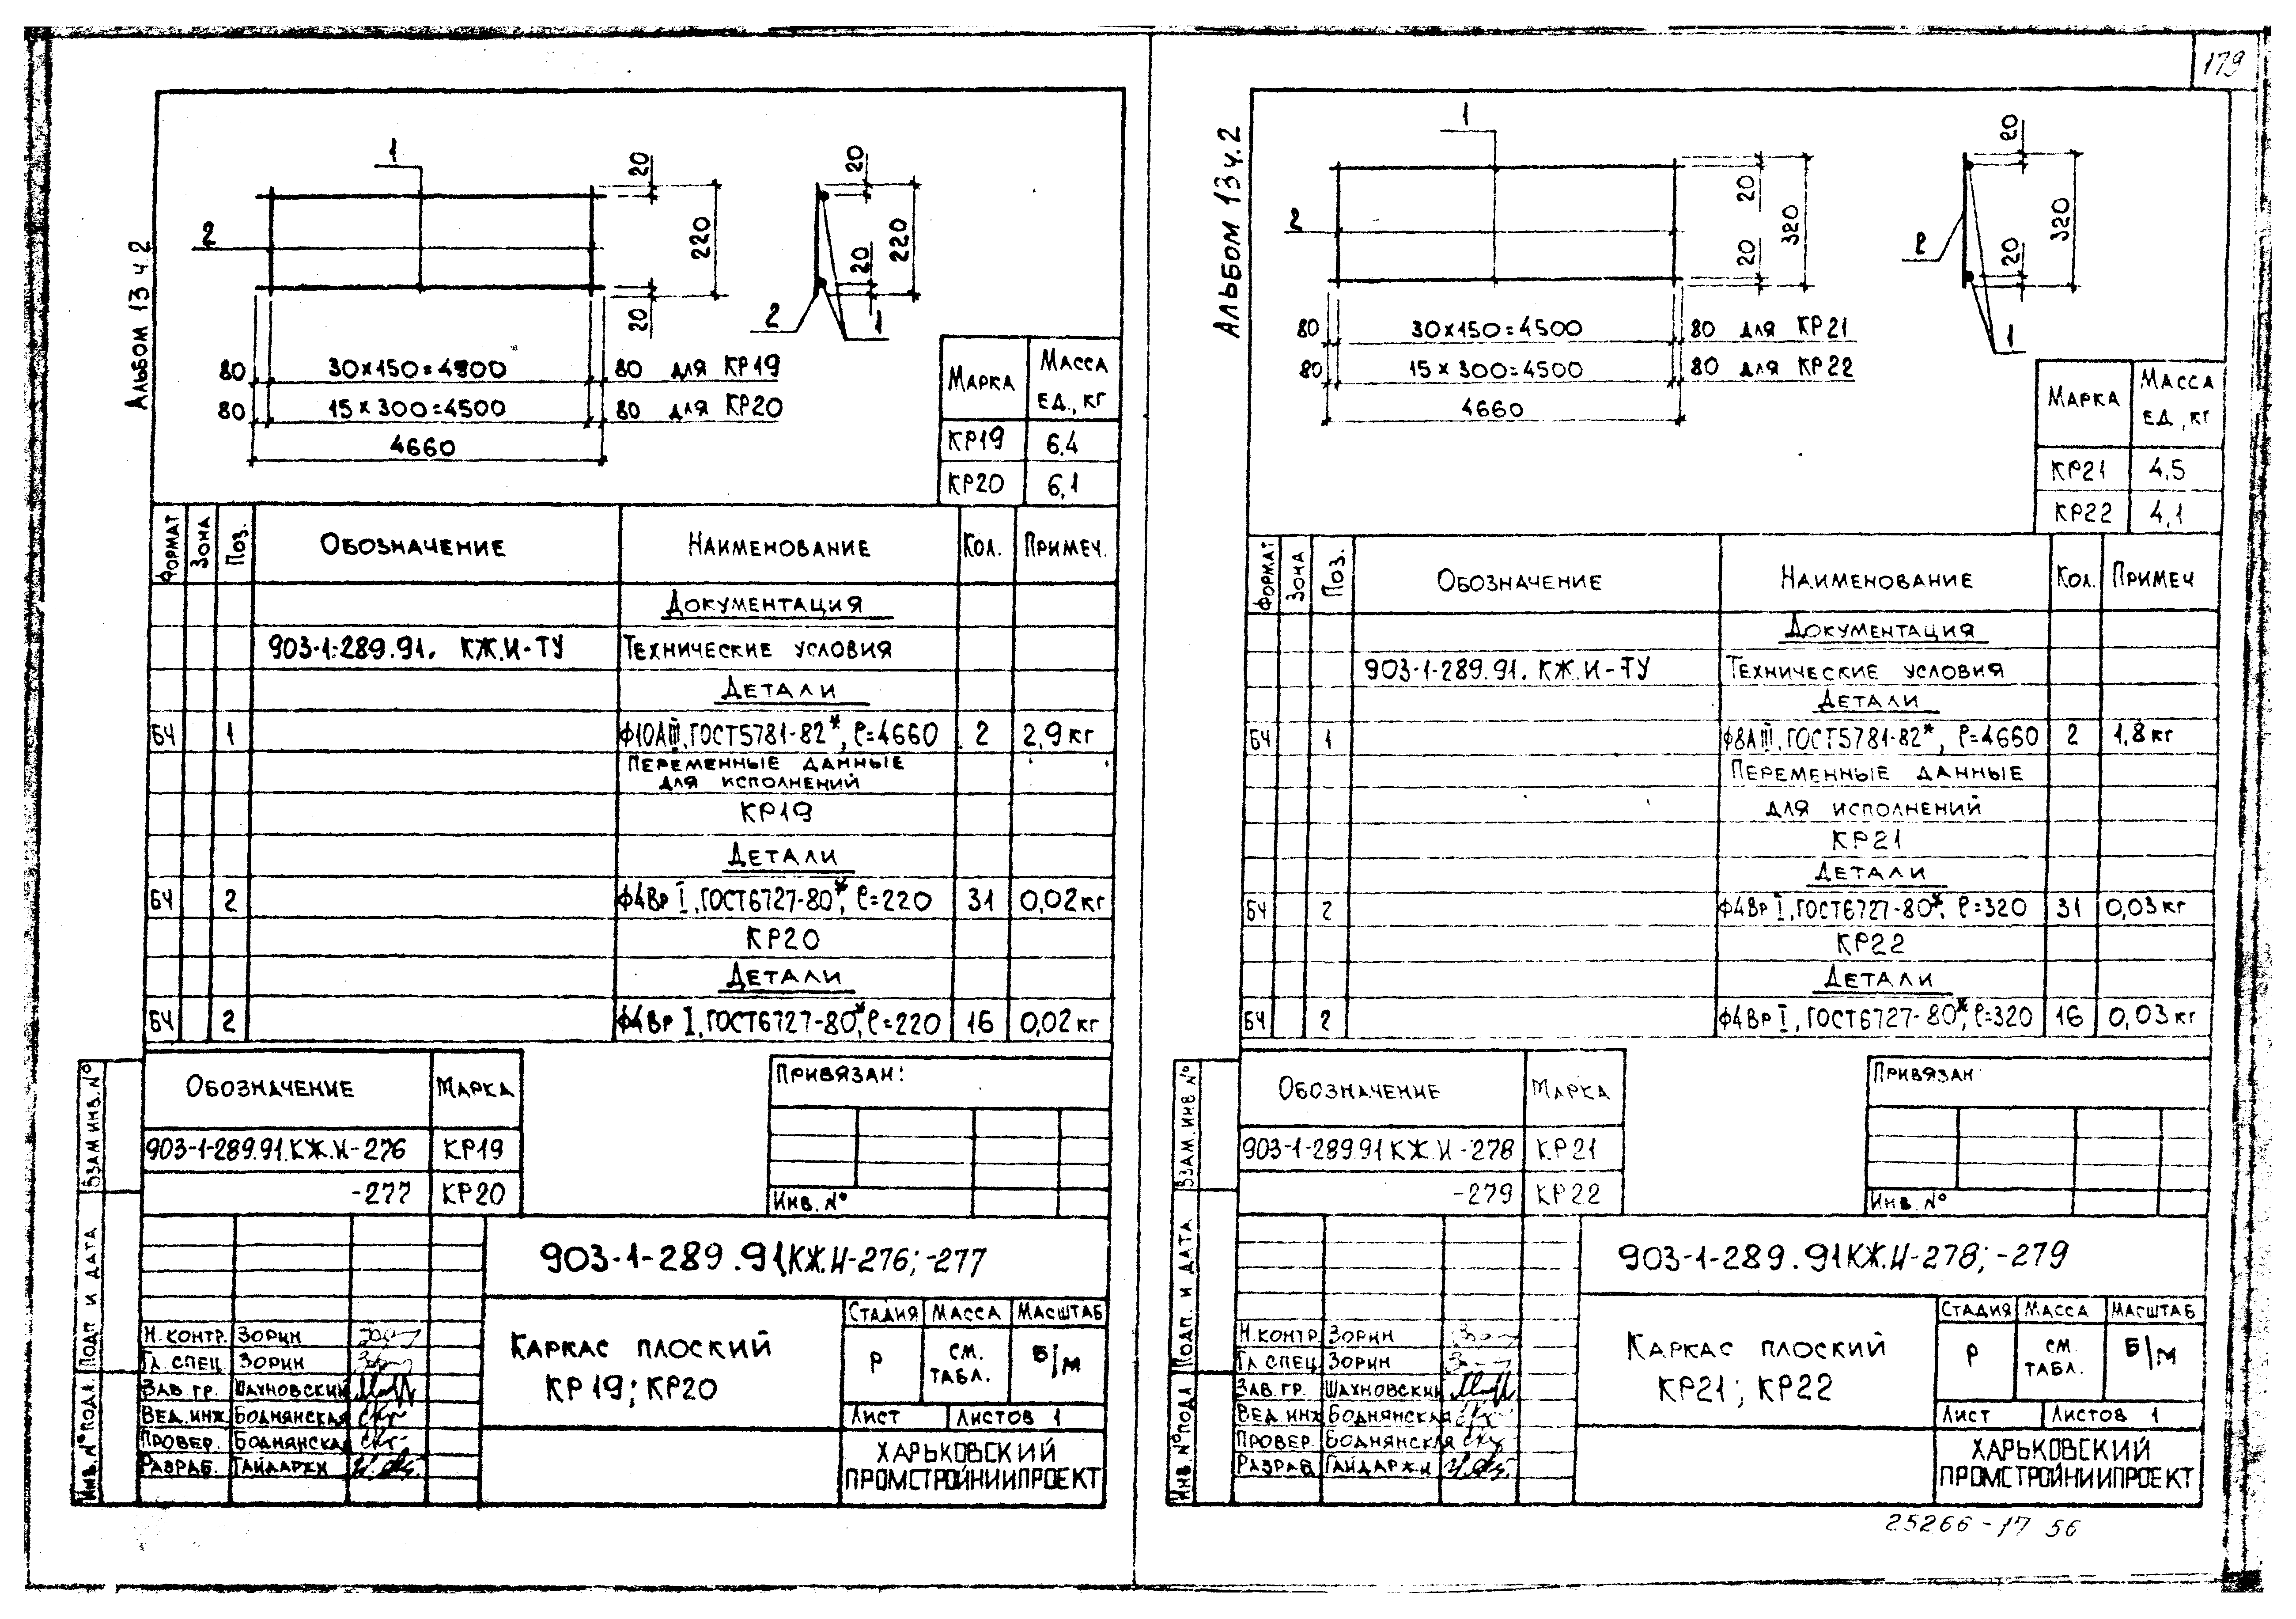 179
Альбом 13 ч 2
1
2
20
220
20
20
220
20
2
1
80 30×150=4500 80 для КР19
80 15×300=4500 80 для КР20
4660
Марка Масса ед., кг
КР19 6.4
КР20 6,1
Формат Зона Поз. Обозначение Наименование Кол. Примеч.
Документация
903-1-289.91. КЖ.И-ТУ Технические условия
Детали
БЧ 1 ф10АIII, ГОСТ5781-82*, ℓ=4660 2 2,9 кг
Переменные данные
для исполнений
КР19
Детали
БЧ 2 ф4Вр I, ГОСТ6727-80*, ℓ=220 31 0,02 кг
КР20
Детали
БЧ 2 ф4Вр I, ГОСТ6727-80*, ℓ=220 16 0,02 кг
Обозначение Марка
903-1-289.91.КЖ.И-276 КР19
-277 КР20
Привязан:
Инв. №
Взам инв. №
Подп и дата
Инв. № подл.
903-1-289.91КЖ.И-276; -277
Н.контр. Зорин
Гл. спец Зорин
Зав гр. Шахновский
Вед. инж Боднянская
Провер. Боднянская
Разраб. Гайдаржи
Каркас плоский
КР19; КР20
Стадия Масса Масштаб
Р см. табл. Б/м
Лист Листов 1
Харьковский
ПромстройНИИпроект
Альбом 13 ч. 2
1
2
20
20
320
20
20
320
2
1
80 30×150=4500 80 для КР21
80 15×300=4500 80 для КР22
4660
Марка Масса ед, кг
КР21 4,5
КР22 4,1
Формат Зона Поз. Обозначение Наименование Кол. Примеч
Документация
903-1-289.91. КЖ.И-ТУ Технические условия
Детали
БЧ 1 ф8АIII, ГОСТ5781-82*, ℓ=4660 2 1,8 кг
Переменные данные
для исполнений
КР21
Детали
БЧ 2 ф4Вр I, ГОСТ6727-80*, ℓ=320 31 0,03 кг
КР22
Детали
БЧ 2 ф4Вр I, ГОСТ6727-80*, ℓ=320 16 0,03 кг
Обозначение Марка
903-1-289.91 КЖ.И-278 КР21
-279 КР22
Привязан
Инв. №
Взам. инв №
Подп. и дата
Инв. № подл
903-1-289.91КЖ.И-278; -279
Н.контр. Зорин
Гл спец. Зорин
Зав. гр. Шахновский
Вед инж Боднянская
Провер. Боднянская
Разраб Гайдаржи
Каркас плоский
КР21; КР22
Стадия Масса Масштаб
Р см. табл. Б/м
Лист Листов 1
Харьковский
ПромстройНИИпроект
25266-17 56